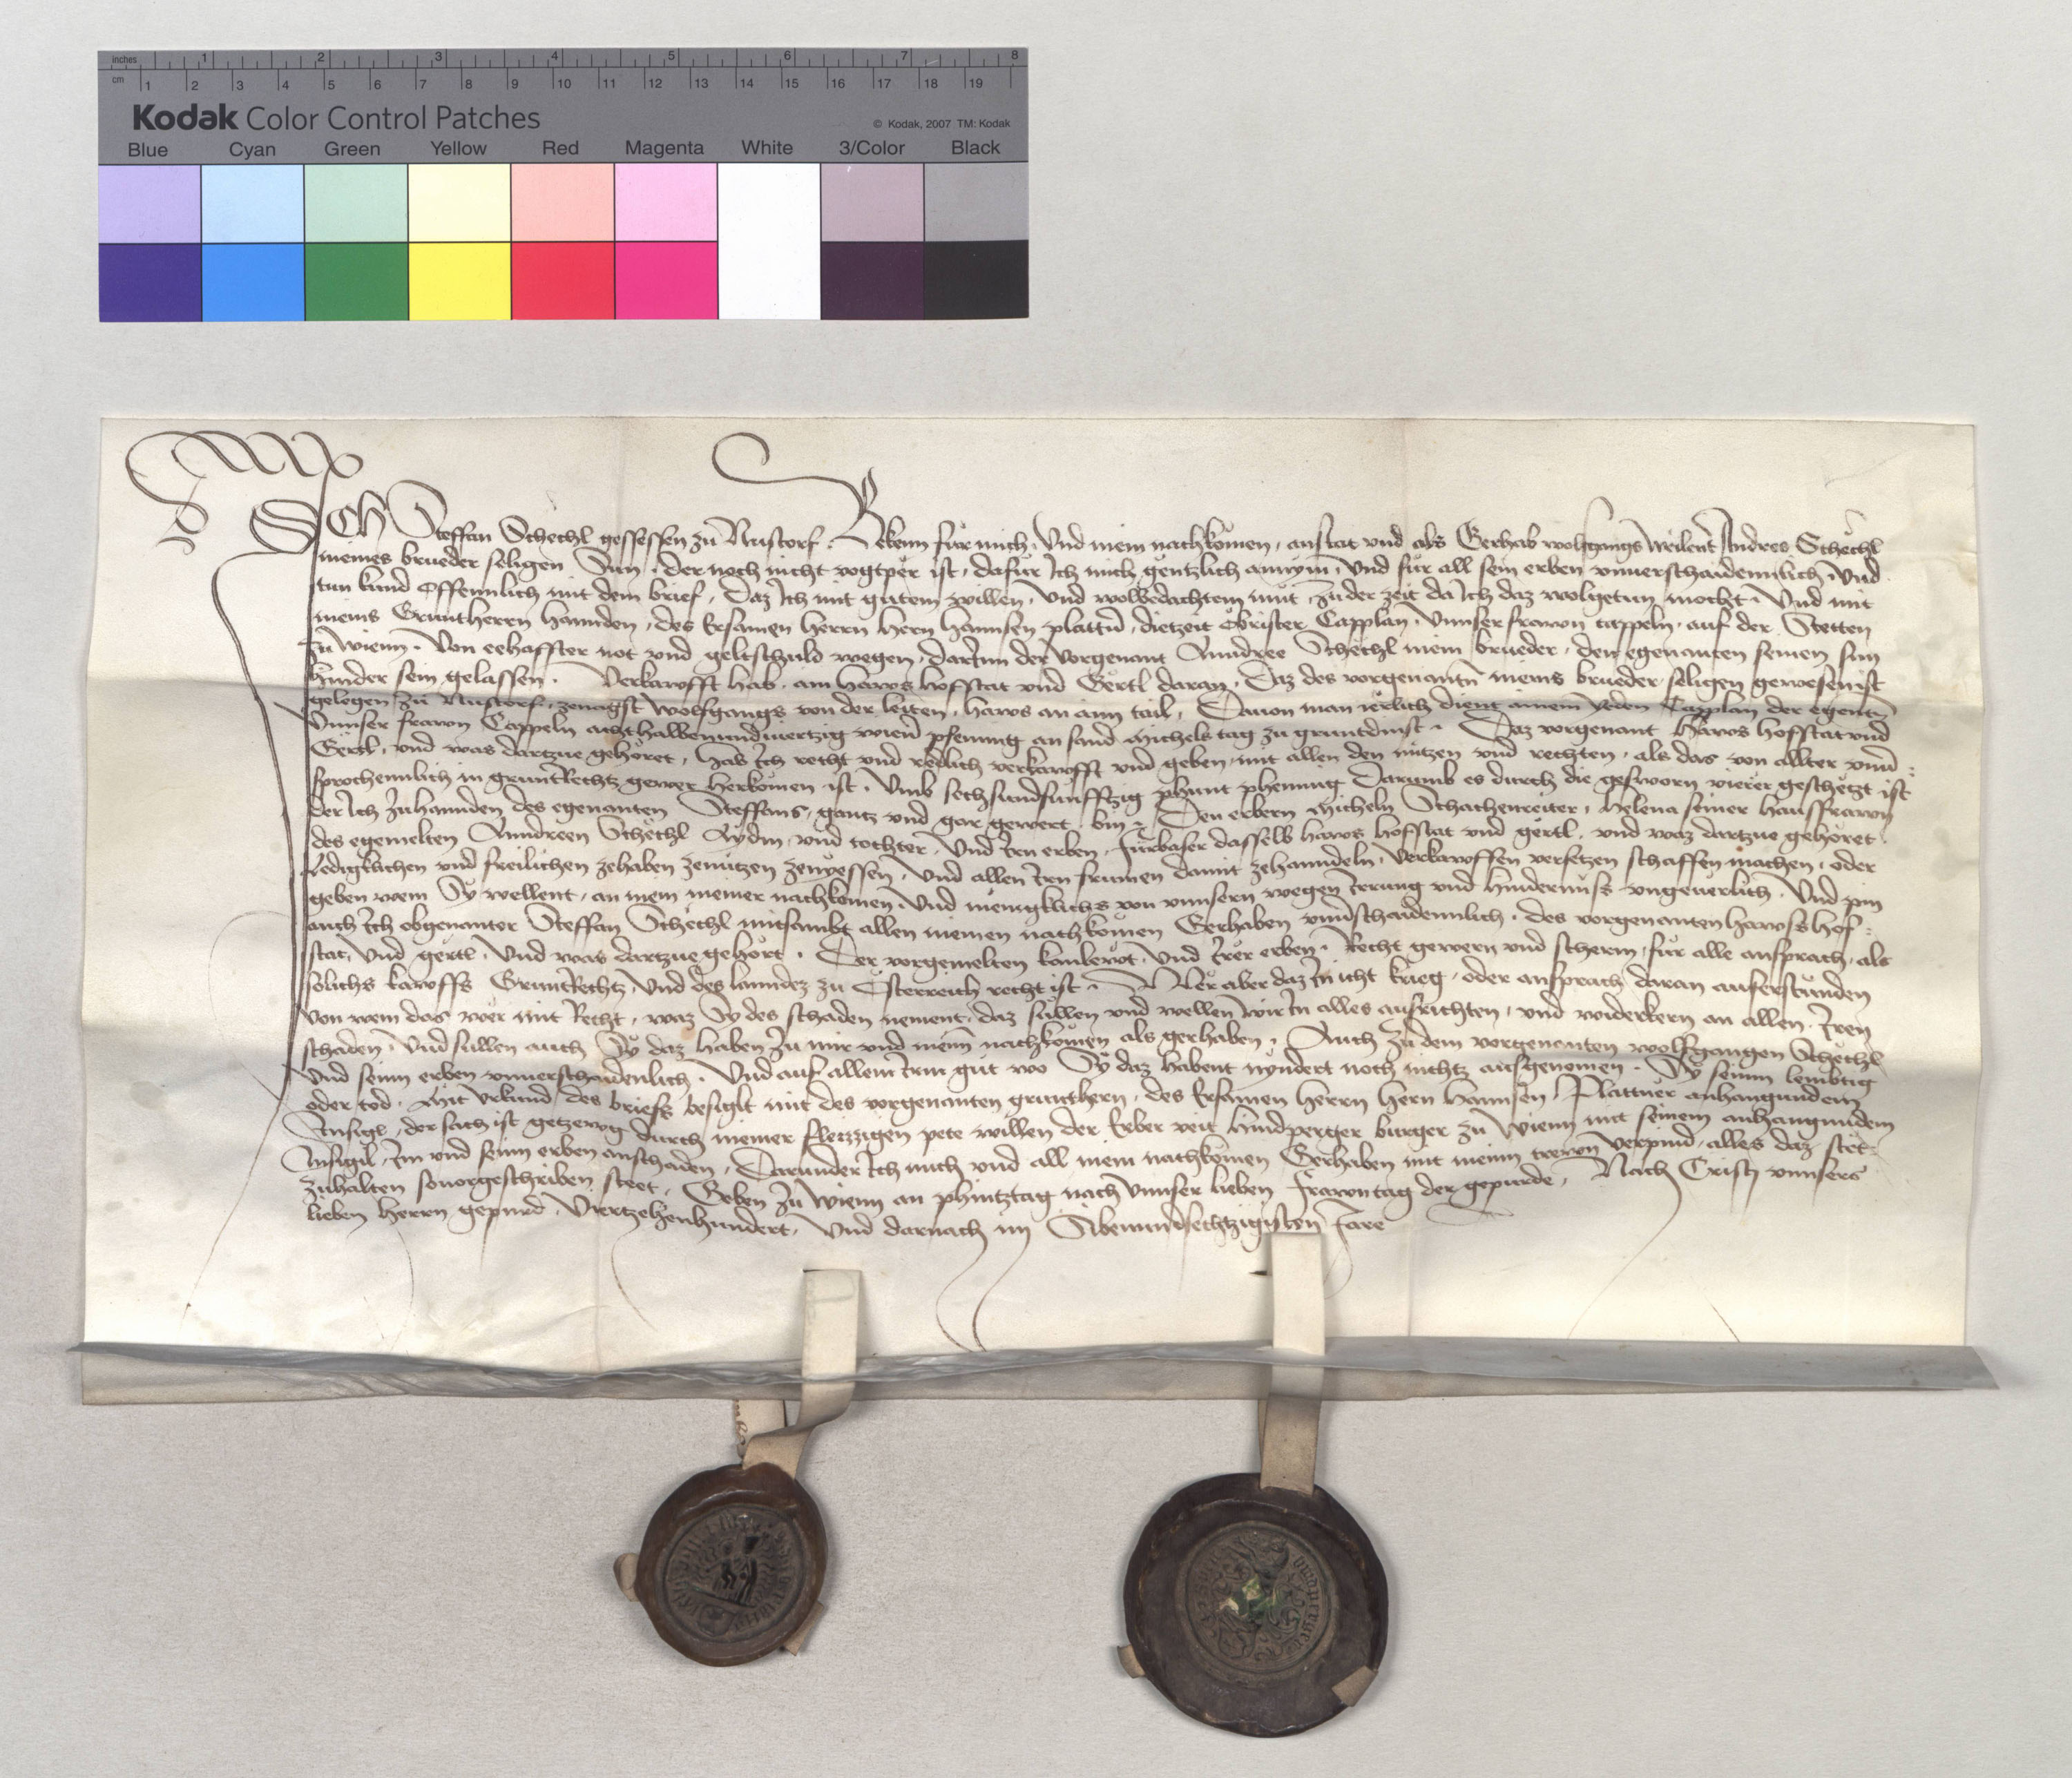 inches 1 2 3 4 5 6 7 8
cm 1 2 3 4 5 6 7 8 9 10 11 12 13 14 15 16 17 18 19
Kodak Color Control Patches
© Kodak, 2007 TM: Kodak
Blue Cyan Green Yellow Red Magenta White 3/Color Black
ICH Steffan Schechl gesessen zu Nustorf. Bekenn für mich, Und mein nachkomen, anstat und als Gerhab wolfgangs weilent Andres Schechl
meines brueder seligen Sun, der noch nicht vogtper ist, dafur Ich mich gentzlich annym, Und für all sein erben unuerschaidennlich, Und
tun kund Offennlich mit dem brief, Daz Ich mit gutem willen, Und wolbedachtem mut, zu der zeit da Ich daz wolgetun mocht, Und mit
meins Gruntherrn hannden, des Ersamen herrn hern hannsen plattner, dietzeit Obrister Capplan, Unnser frawn cappeln, auf der Stetten
zu wienn. Von eehaffter not und geltschuld wegen, darInn der vorgenant Anndree Schechl mein brueder, den egenanten seinen sun
hinder sein gelassen. Verkawfft hab, ain haws hofstat und Gertl daran, Daz des vorgenantn meins brueder seligen gewesen ist
gelegen zu Nustorf, zenagst wolfgangs von der leiten, haws an ainn tail, Dauon man ierlich dient ainem yeden Capplan der egentn
Unnser frawn Cappeln achthalbenundviertzig wienner phenning an sand Michels tag zu gruntdinst. Daz vorgenant haws hofstat und
Gertl, und was dartzue gehoret, hab Ich recht und redlich verkawfft und geben, mit allen den nützen und rechten, als das von allter unuer-
sprochennlich in gruntRechtz gewer herkomen ist, Umb sechsundfunfftzig phunt phening Darumb es durch die gesworn vierer geschetzt ist
der Ich zuhannden des egenanten Steffans, gantz und gar gewert bin. Den erbern Micheln Schachenreiter, Helena seiner hausfrawn
des egemelten Anndreen Schechl Aydm, und tochter, Und Irn erben, furbaser dasselb haws hofstat und gertl, und waz dartzue gehoret.
Ledigklichen und freilichen zehaben zenützen zenyessen, Und allen Irn frumen damit zehanndeln, verkawffen versetzen schaffen machen, oder
geben wem Sy wellent, an mein meiner nachkomen, Und menigklichs von unnsern wegen Irrung und hindernuss ungeuerlich. Und pin
auch Ich obgenanter Steffan Schechl mitsambt allen meinen nachkomen Gerhaben unuerschaidennlich, des vorgenanten hawss hof-
stat, Und gertl, Und was dartzue gehort, Der vorgemelten konlewt, Und Irer erben, Recht gewern und scherm, für alle ansprach, als
solichs kawffs GruntRechtz, Und des lanndez zu Österreich recht ist. Wer aber daz In icht krieg, oder ansprach daran auferstunden
von wem das wer mit Recht, waz Sy des schaden nement, daz sullen und wellen wir In alles ausrichten, und widerkern an allen Iren
schaden, Und sullen auch Sy daz haben zu mir und meinn nachkomen als gerhaben, Auch zu dem vorgenanten wolfgangen Schechl
Und seinn erben unuerschaidenlich, Und auf allem Irm gut wo Sy daz habent nyndert noch nichtz ausgenomen. Sy seinn lembtig
oder tod. Mit urkund des briefs besiglt mit des vorgenanten grunthern, des Ersamen herrn hern hannsen Plattner anhangundem
Insigl, der sach ist getzewg durch meiner fleizzigen pete willen der Erber veit hindperger burger zu wienn mit seinem anhangundem
Insigil, Im und seinn erben anschaden, Darunder Ich mich und all mein nachkomen Gerhaben mit meinn trewn verpind, alles daz stet-
zuhalten souorgeschriben steet, Geben zu wienn an phintztag nach unnser lieben frawntag der gepurde, Nach Cristi unnsers
lieben herrn gepurd, Viertzehenhundert, Und darnach im Sibenundsechtzigisten Jare